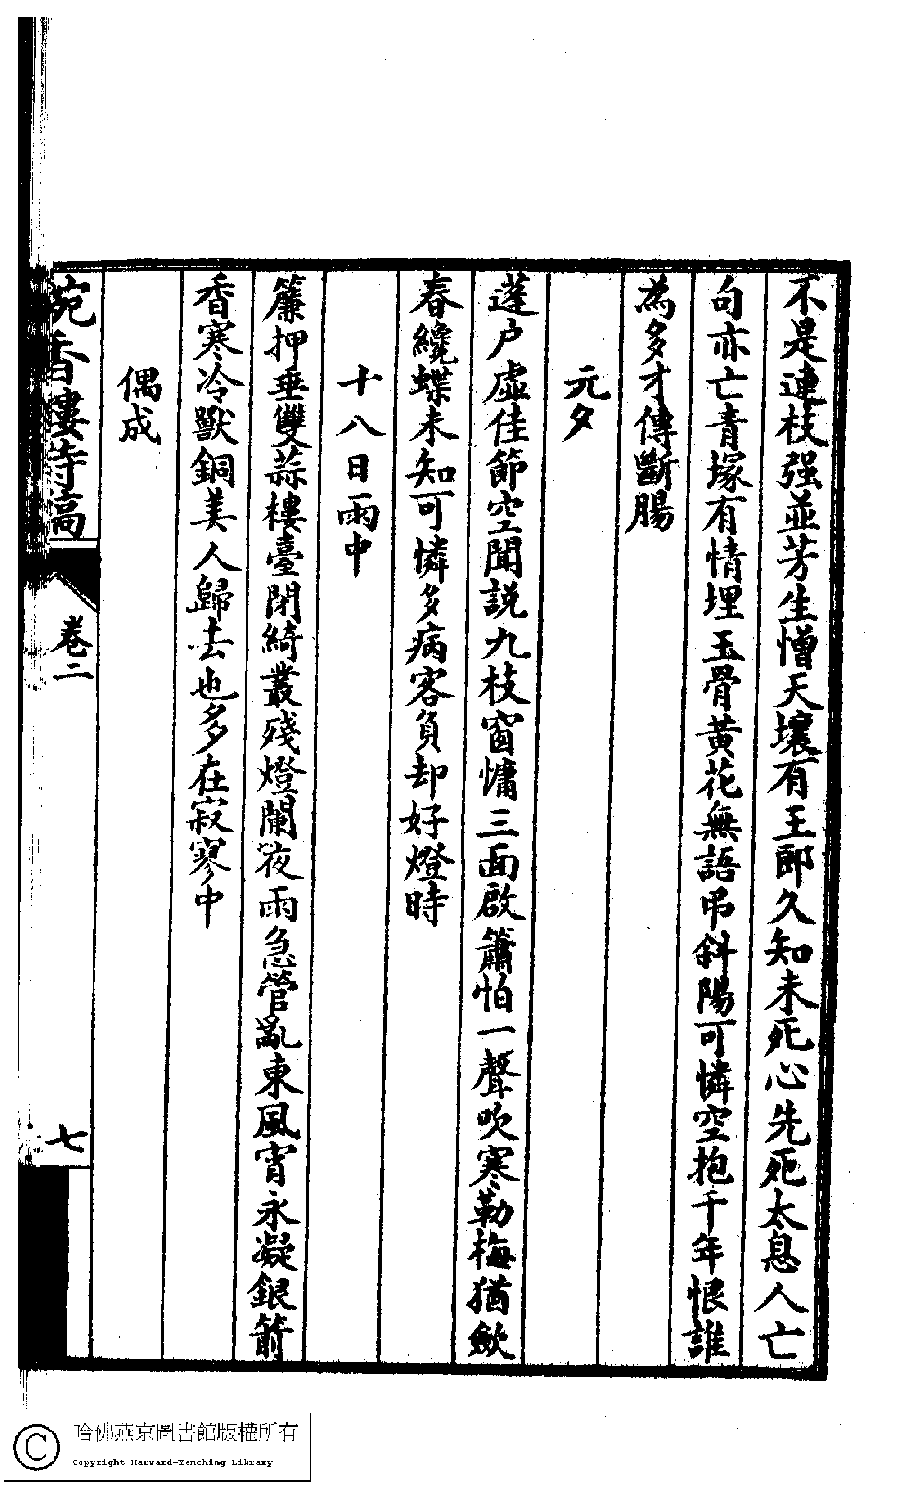 不是連枝强並芳生憎天壤有王郎久知未死心先死太息人亡
句亦亡青塚有情埋玉骨黃花無語弔斜陽可憐空抱千年恨誰
為多才傳斷腸
元夕
蓬户虛佳節空聞説九枝窗慵三面啟簫怕一聲吹寒勒梅猶歛
春纔蝶未知可憐多病客負却好燈時
十八日雨中
簾押垂雙蒜樓臺閉綺叢殘燈闌夜雨急管亂東風宵永凝銀箭
香寒冷獸銅美人歸去也多在寂寥中
偶成
香樓詩稿
卷二
七
哈佛燕京圖書館版權所有
Copyright Harvard-Yenching Library